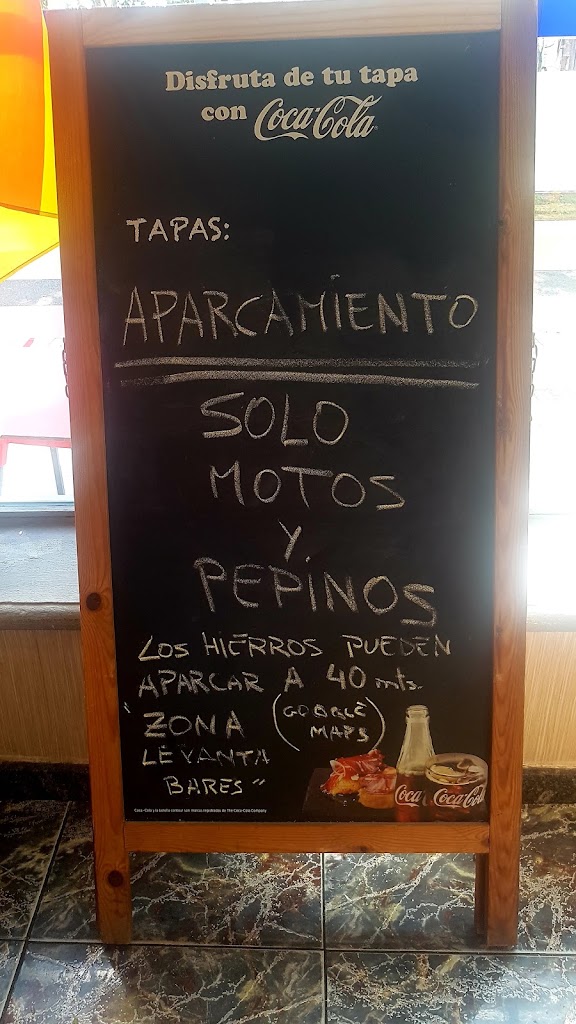 Disfruta de tu tapa
con Coca-Cola
TAPAS:
APARCAMIENTO
SOLO
MOTOS
Y
PEPINOS
LOS HIERROS PUEDEN
APARCAR A 40 mts.
"ZONA (GOOGLE
MAPS)
LEVANTA
BARES"
Coca-Cola
Coca-Cola